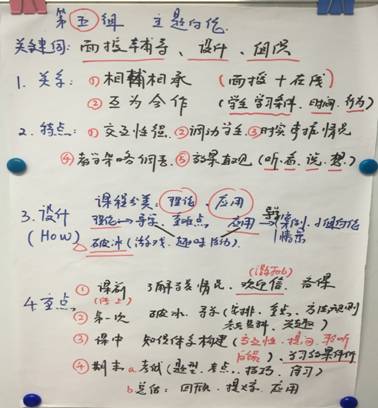 第五组 主题讨论
关键词: 面授辅导、设计、组织
1. 关系: ①相辅相承 (面授+在线)
②互为合作 (学生学习条件、时间、行为)
2. 特点: ①交互性强 ②调动学生 ③时控掌握情况
④教学策略 ⑤效果直观 (听、看、说、想)
课程分类: 理论、应用
3. 设计 理论→导学 重难点 应用→案例、小组讨论
(How) 破冰 (游戏、趣味活动) 情景
4. 重点 ① 课前 了解学情况、欢迎信、备课
(线上)
② 第一次 破冰、导学 (安排、重点、方法、规则
③ 课中 知识体系构建 (交互性、提问、聆听
反馈)、学习效果评价
④ 期末 a 考试 (题型、重点、技巧、复习)
b 总结: 回顾、提文字、应用